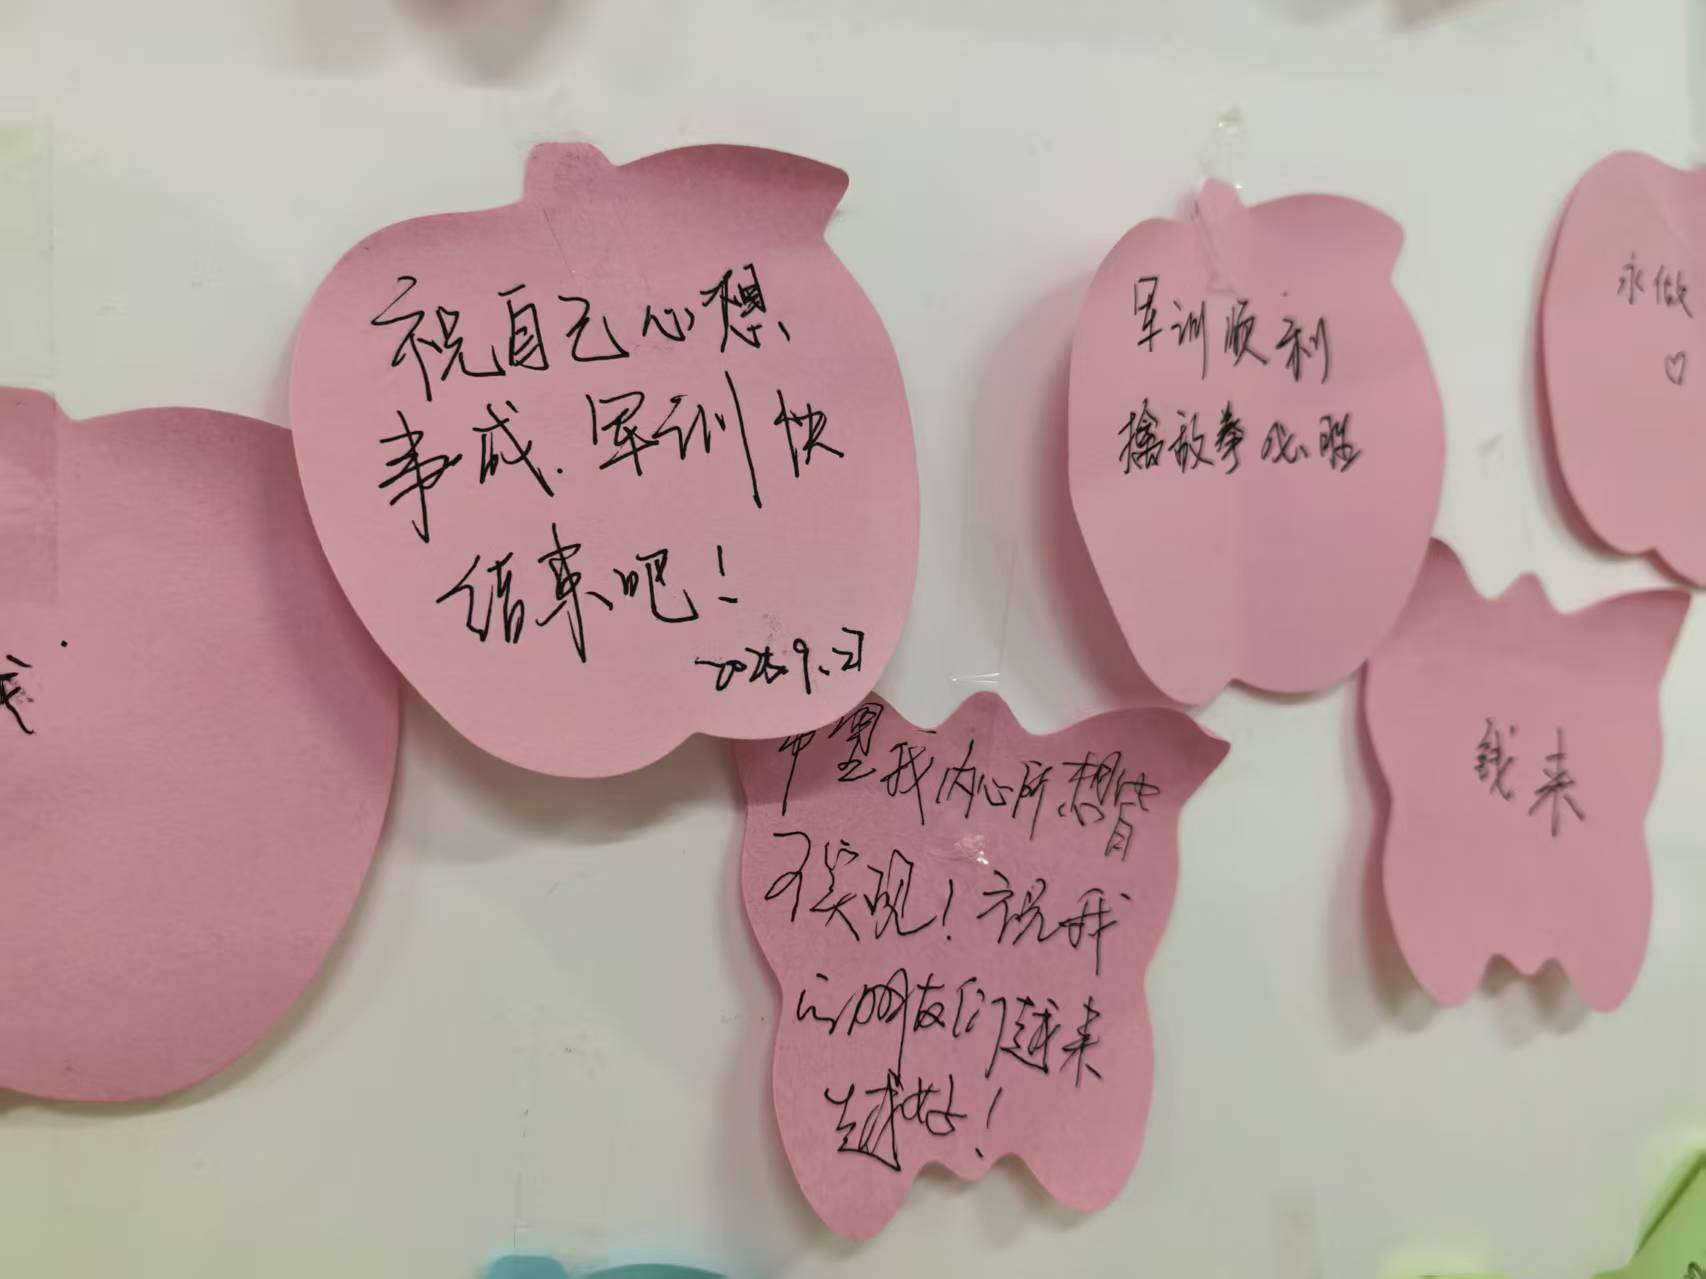 祝自己心想
事成.军训快
结束吧！
2025.9.21
军训顺利
擒敌拳必胜
永做
♡
钱来
希望我内心所想皆
可实现！祝我
的朋友们越来
越好！